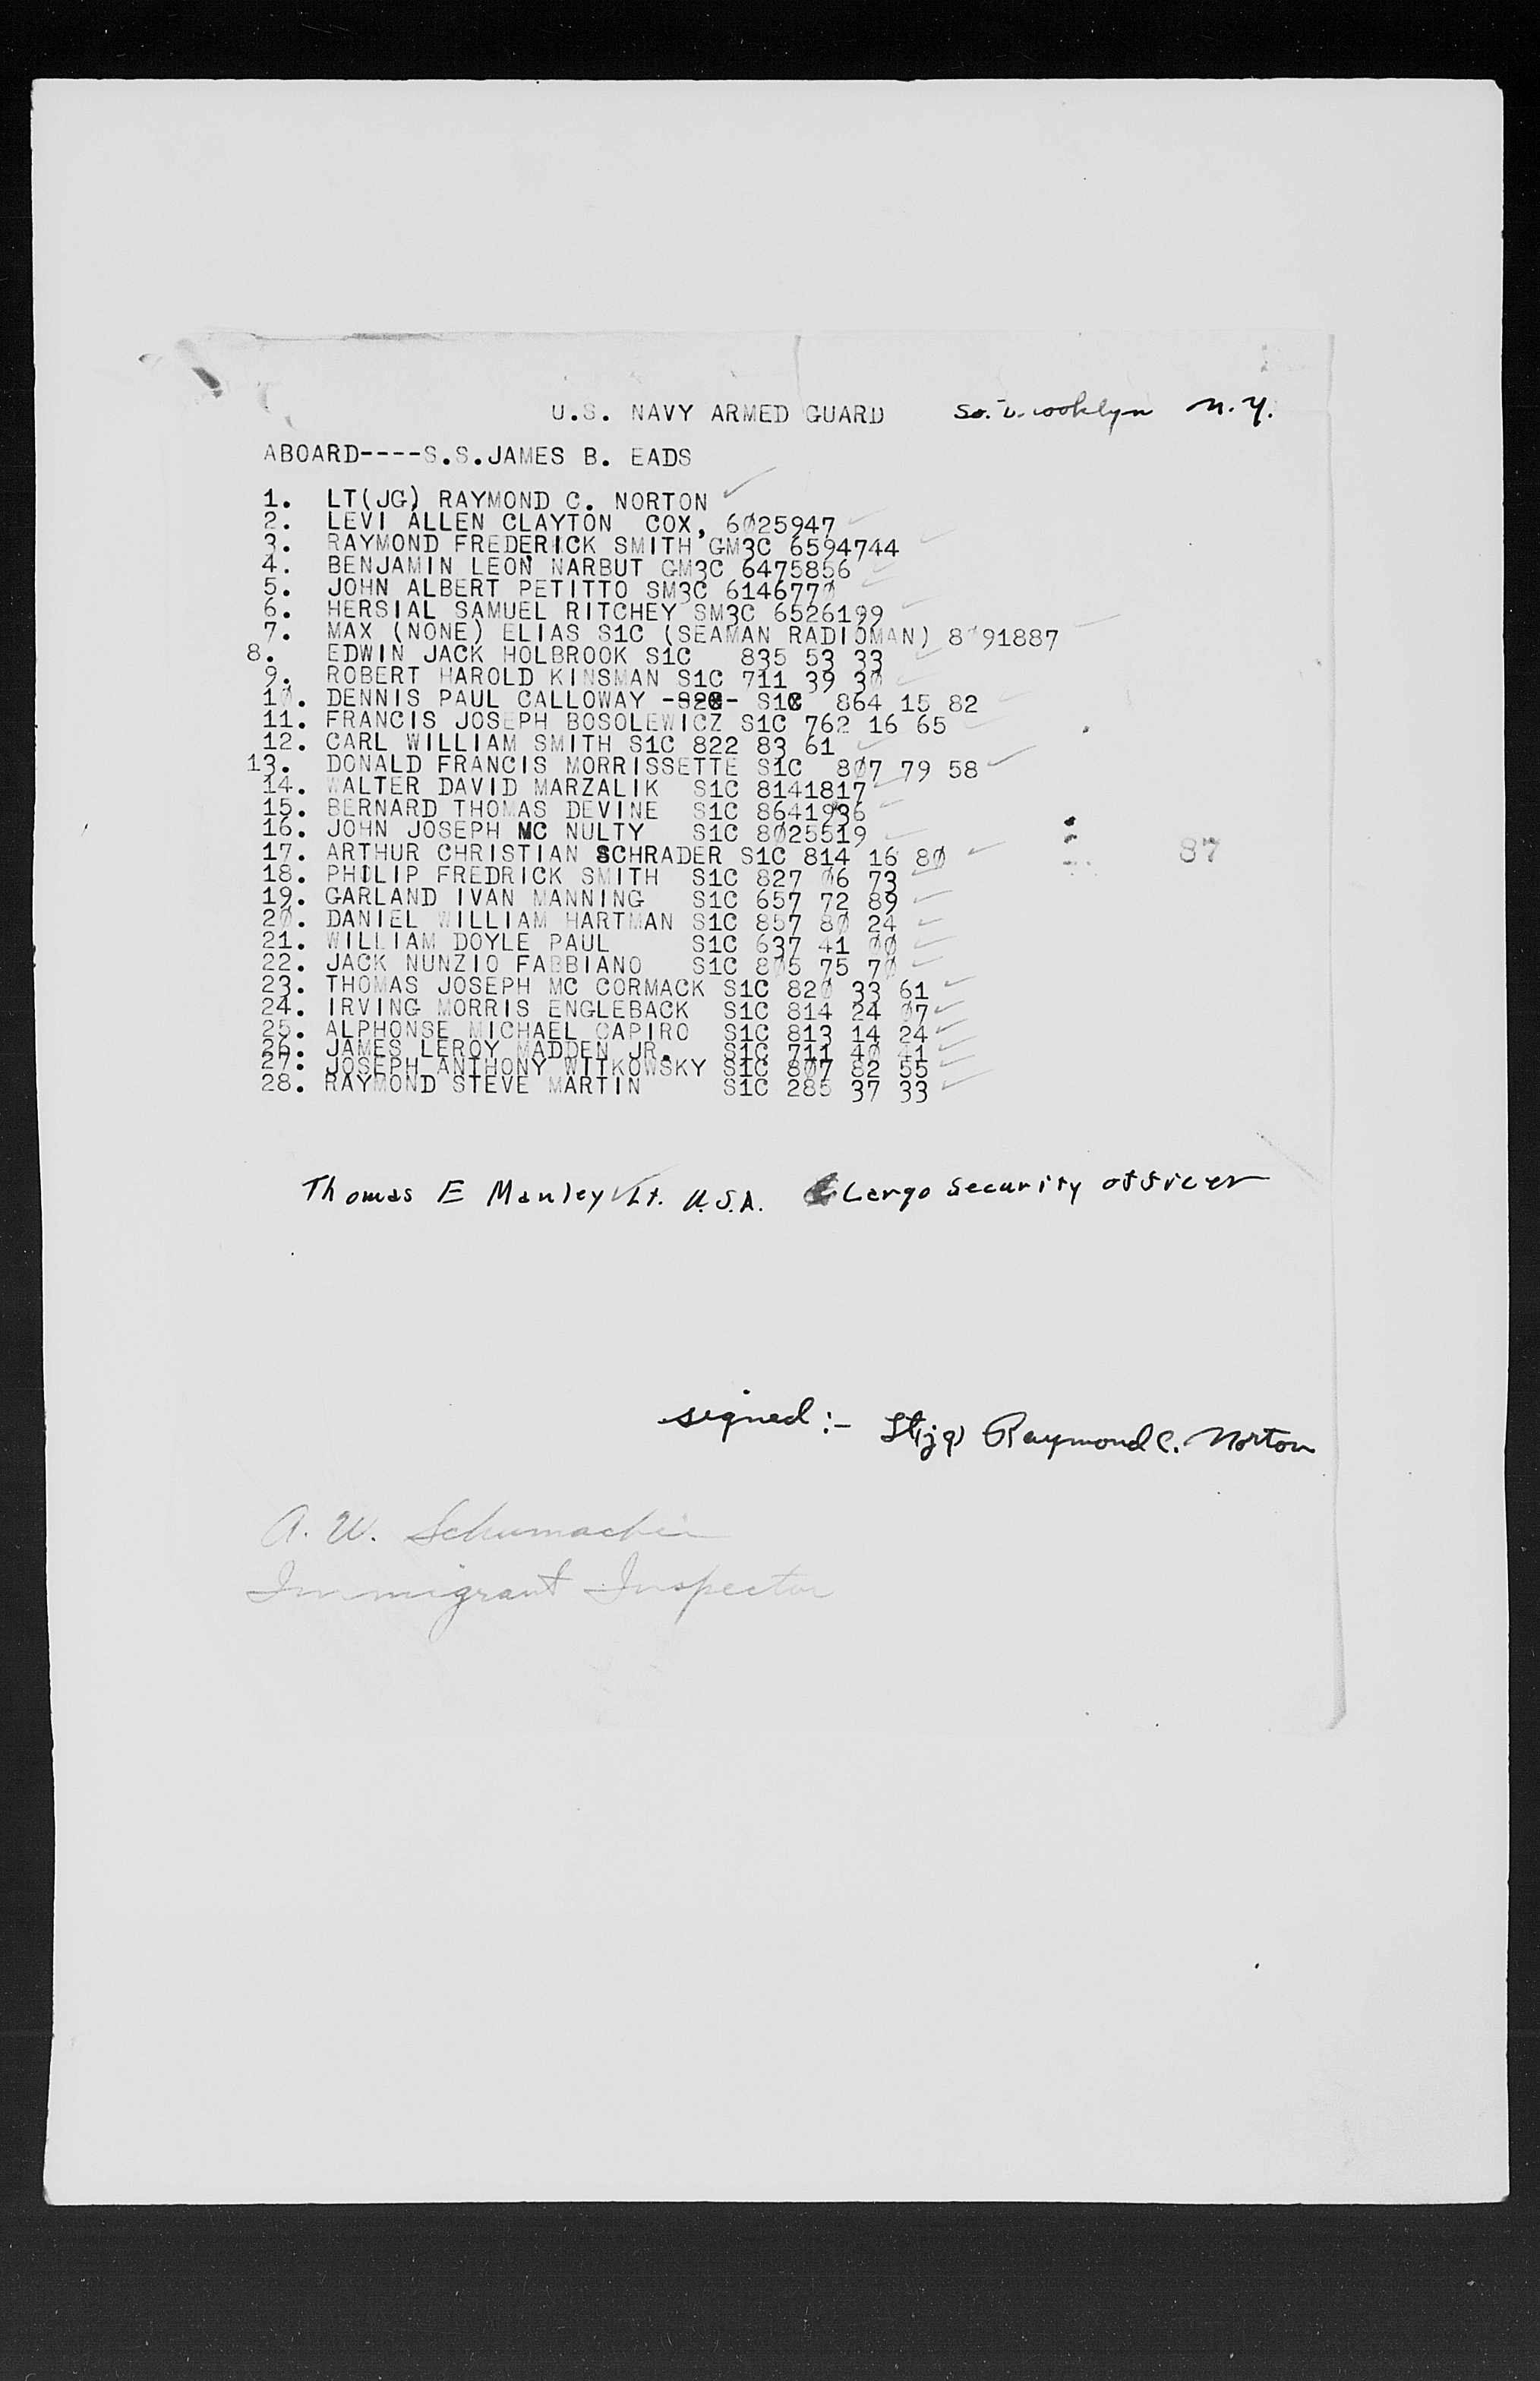 U.S. NAVY ARMED GUARD So. Brooklyn N.Y.
ABOARD----S.S.JAMES B. EADS
1. LT(JG) RAYMOND C. NORTON ✓
2. LEVI ALLEN CLAYTON COX, 6025947 ✓
3. RAYMOND FREDERICK SMITH GM3C 6594744 ✓
4. BENJAMIN LEON NARBUT GM3C 6475856 ✓
5. JOHN ALBERT PETITTO SM3C 6146770 ✓
6. HERSIAL SAMUEL RITCHEY SM3C 6526199 ✓
7. MAX (NONE) ELIAS S1C (SEAMAN RADIOMAN) 8091887 ✓
8. EDWIN JACK HOLBROOK S1C 835 53 33 ✓
9. ROBERT HAROLD KINSMAN S1C 711 39 30 ✓
10. DENNIS PAUL CALLOWAY -S2C- S1C 864 15 82 ✓
11. FRANCIS JOSEPH BOSOLEWICZ S1C 762 16 65 ✓
12. CARL WILLIAM SMITH S1C 822 83 61 ✓
13. DONALD FRANCIS MORRISSETTE S1C 807 79 58 ✓
14. WALTER DAVID MARZALIK S1C 8141817 ✓
15. BERNARD THOMAS DEVINE S1C 8641936 ✓
16. JOHN JOSEPH MC NULTY S1C 8025519 ✓
17. ARTHUR CHRISTIAN SCHRADER S1C 814 16 80 ✓ 87
18. PHILIP FREDRICK SMITH S1C 827 06 73 ✓
19. GARLAND IVAN MANNING S1C 657 72 89 ✓
20. DANIEL WILLIAM HARTMAN S1C 857 80 24 ✓
21. WILLIAM DOYLE PAUL S1C 637 41 00 ✓
22. JACK NUNZIO FABBIANO S1C 805 75 70 ✓
23. THOMAS JOSEPH MC CORMACK S1C 820 33 61 ✓
24. IRVING MORRIS ENGLEBACK S1C 814 24 07 ✓
25. ALPHONSE MICHAEL CAPIRO S1C 813 14 24 ✓
26. JAMES LEROY MADDEN JR. S1C 711 40 41 ✓
27. JOSEPH ANTHONY WITKOWSKY S1C 807 82 55 ✓
28. RAYMOND STEVE MARTIN S1C 285 37 33 ✓
Thomas E Manley ✓ Lt. U.S.A. Cargo Security officer
signed:- Lt(jg) Raymond C. Norton
A. W. Schumacher
Immigrant Inspector